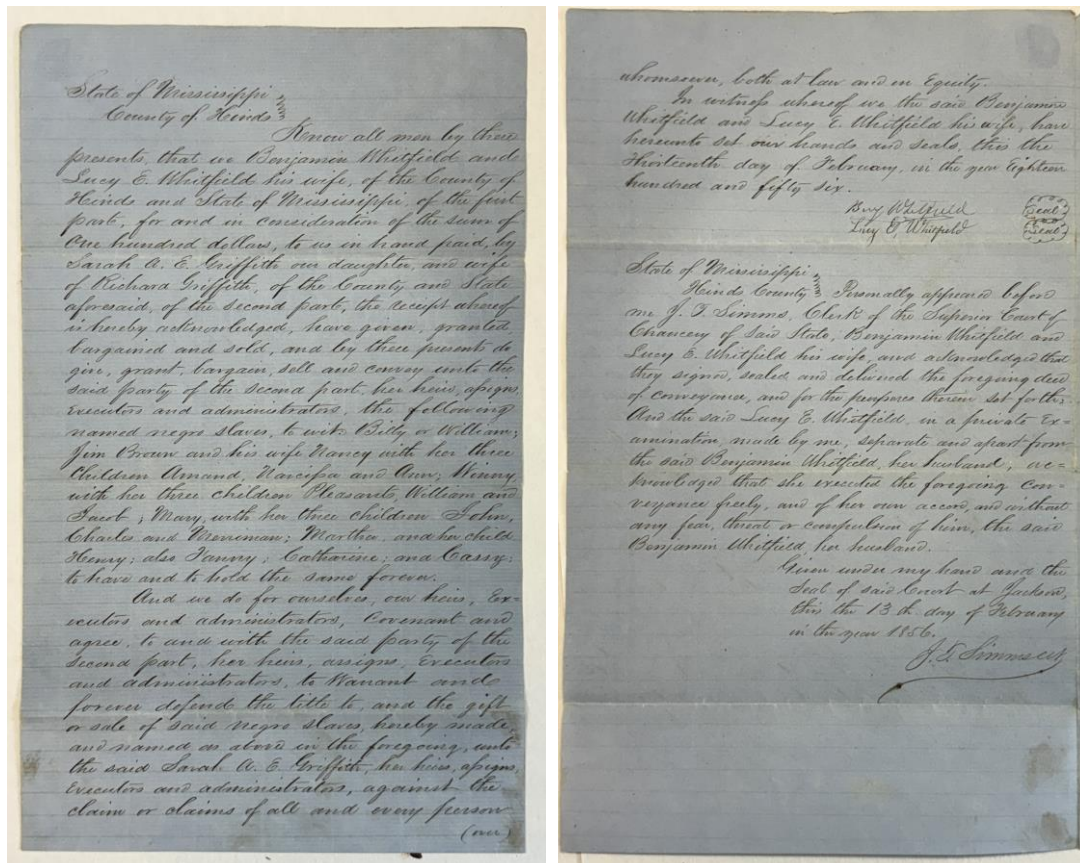 State of Mississippi
County of Hinds
Know all men by these
presents, that we Benjamin Whitfield and
Lucy E. Whitfield his wife, of the County of
Hinds and State of Mississippi, of the first
part, for and in consideration of the sum of
One hundred dollars, to us in hand paid, by
Sarah A. E. Griffith our daughter, and wife
of Richard Griffith, of the County and State
aforesaid, of the second part, the receipt whereof
is hereby acknowledged, have given, granted
bargained and sold, and by these presents do
give, grant, bargain, sell and convey unto the
said party of the second part, her heirs, assigns,
Executors and administrators, the following
named negro slaves, to wit: Billy or William;
Jim Brown and his wife Nancy with her three
Children Amand, Narcissa and Ann; Winny
with her three children Pleasants, William and
Jacob; Mary, with her three children John,
Charles and Merriman; Martha, and her child
Henry; also Fanny; Catharine; and Cassy;
to have and to hold the same forever.
And we do for ourselves, our heirs, Ex=
ecutors and administrators, Covenant and
agree, to and with the said party of the
second part, her heirs, assigns, Executors
and administrators, to Warrant and
forever defend the title to, and the gift
or sale of said negro slaves, hereby made
and named as above in the foregoing, unto
the said Sarah A. E. Griffith, her heirs, assigns,
Executors and administrators, against the
claim or claims of all and every person
(over)
whomsoever, both at law and in Equity.
In witness whereof we the said Benjamin
Whitfield and Lucy E. Whitfield his wife, have
hereunto set our hands and seals, this the
thirteenth day of February, in the year Eighteen
hundred and fifty six.
Benj Whitfield Seal
Lucy E, Whitfield Seal
State of Mississippi
Hinds County Personally appeared before
me J. T. Simms, Clerk of the Superior Court of
Chancery of said State, Benjamin Whitfield and
Lucy E. Whitfield his wife, and acknowledged that
they signed, sealed and delivered the foregoing deed
of conveyance, and for the purposes therein set forth;
And the said Lucy E. Whitfield, in a private Ex=
amination, made by me, separate and apart from
the said Benjamin Whitfield, her husband, ac=
knowledged that she executed the foregoing con=
veyance freely, and of her own accord, and without
any fear, threat or compulsion of him, the said
Benjamin Whitfield, her husband.
Given under my hand and the
Seal of said Court at Jackson,
this the 13th day of February
in the year 1856.
J. T. Simms clk